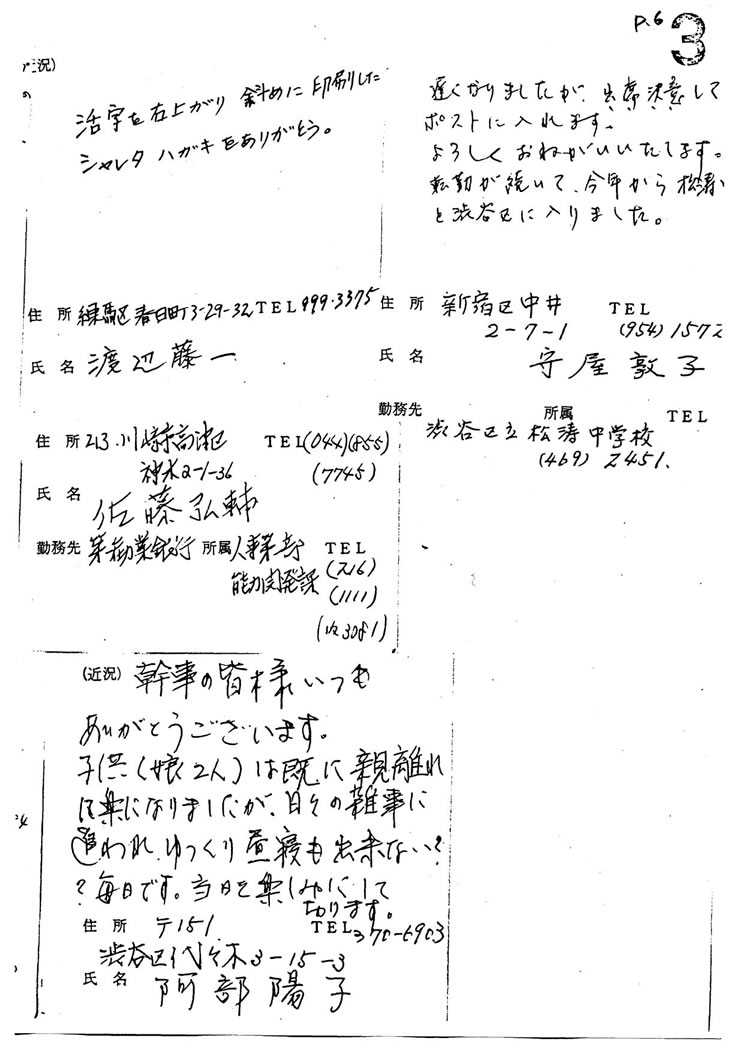 P.6
3
近況)
活字を右上がり 斜めに印刷した
シャレタハガキをありがとう。
住所 練馬区春日町3-29-32 TEL 999-3375
氏名 渡辺藤一
遅くなりましたが、出席決意して
ポストに入れます。
よろしくおねがいいたします。
転勤が続いて、今年から松濤
と渋谷区に入りました。
住所 新宿区中井 TEL
2-7-1 (954) 1572
氏名 守屋敦子
勤務先 所属 TEL
渋谷区立松濤中学校
(469) 2451.
住所 213 川崎市高津区 TEL (044)(855)
2-1-36 (7745)
氏名 佐藤弘輔
勤務先 第一勧業銀行 所属 人事部 TEL
能力開発課 (216)
(1111)
3081)
(近況) 幹事の皆様いつも
ありがとうございます。
子供(娘2人)は既に親離れ
は楽になりましたが、日々の雑事に
追われ、ゆっくり昼寝も出来ない?
?毎日です。当日を楽しみにして
おります。
住所 〒151 TEL 370-6903
渋谷区代々木3-15-3
氏名 阿部陽子